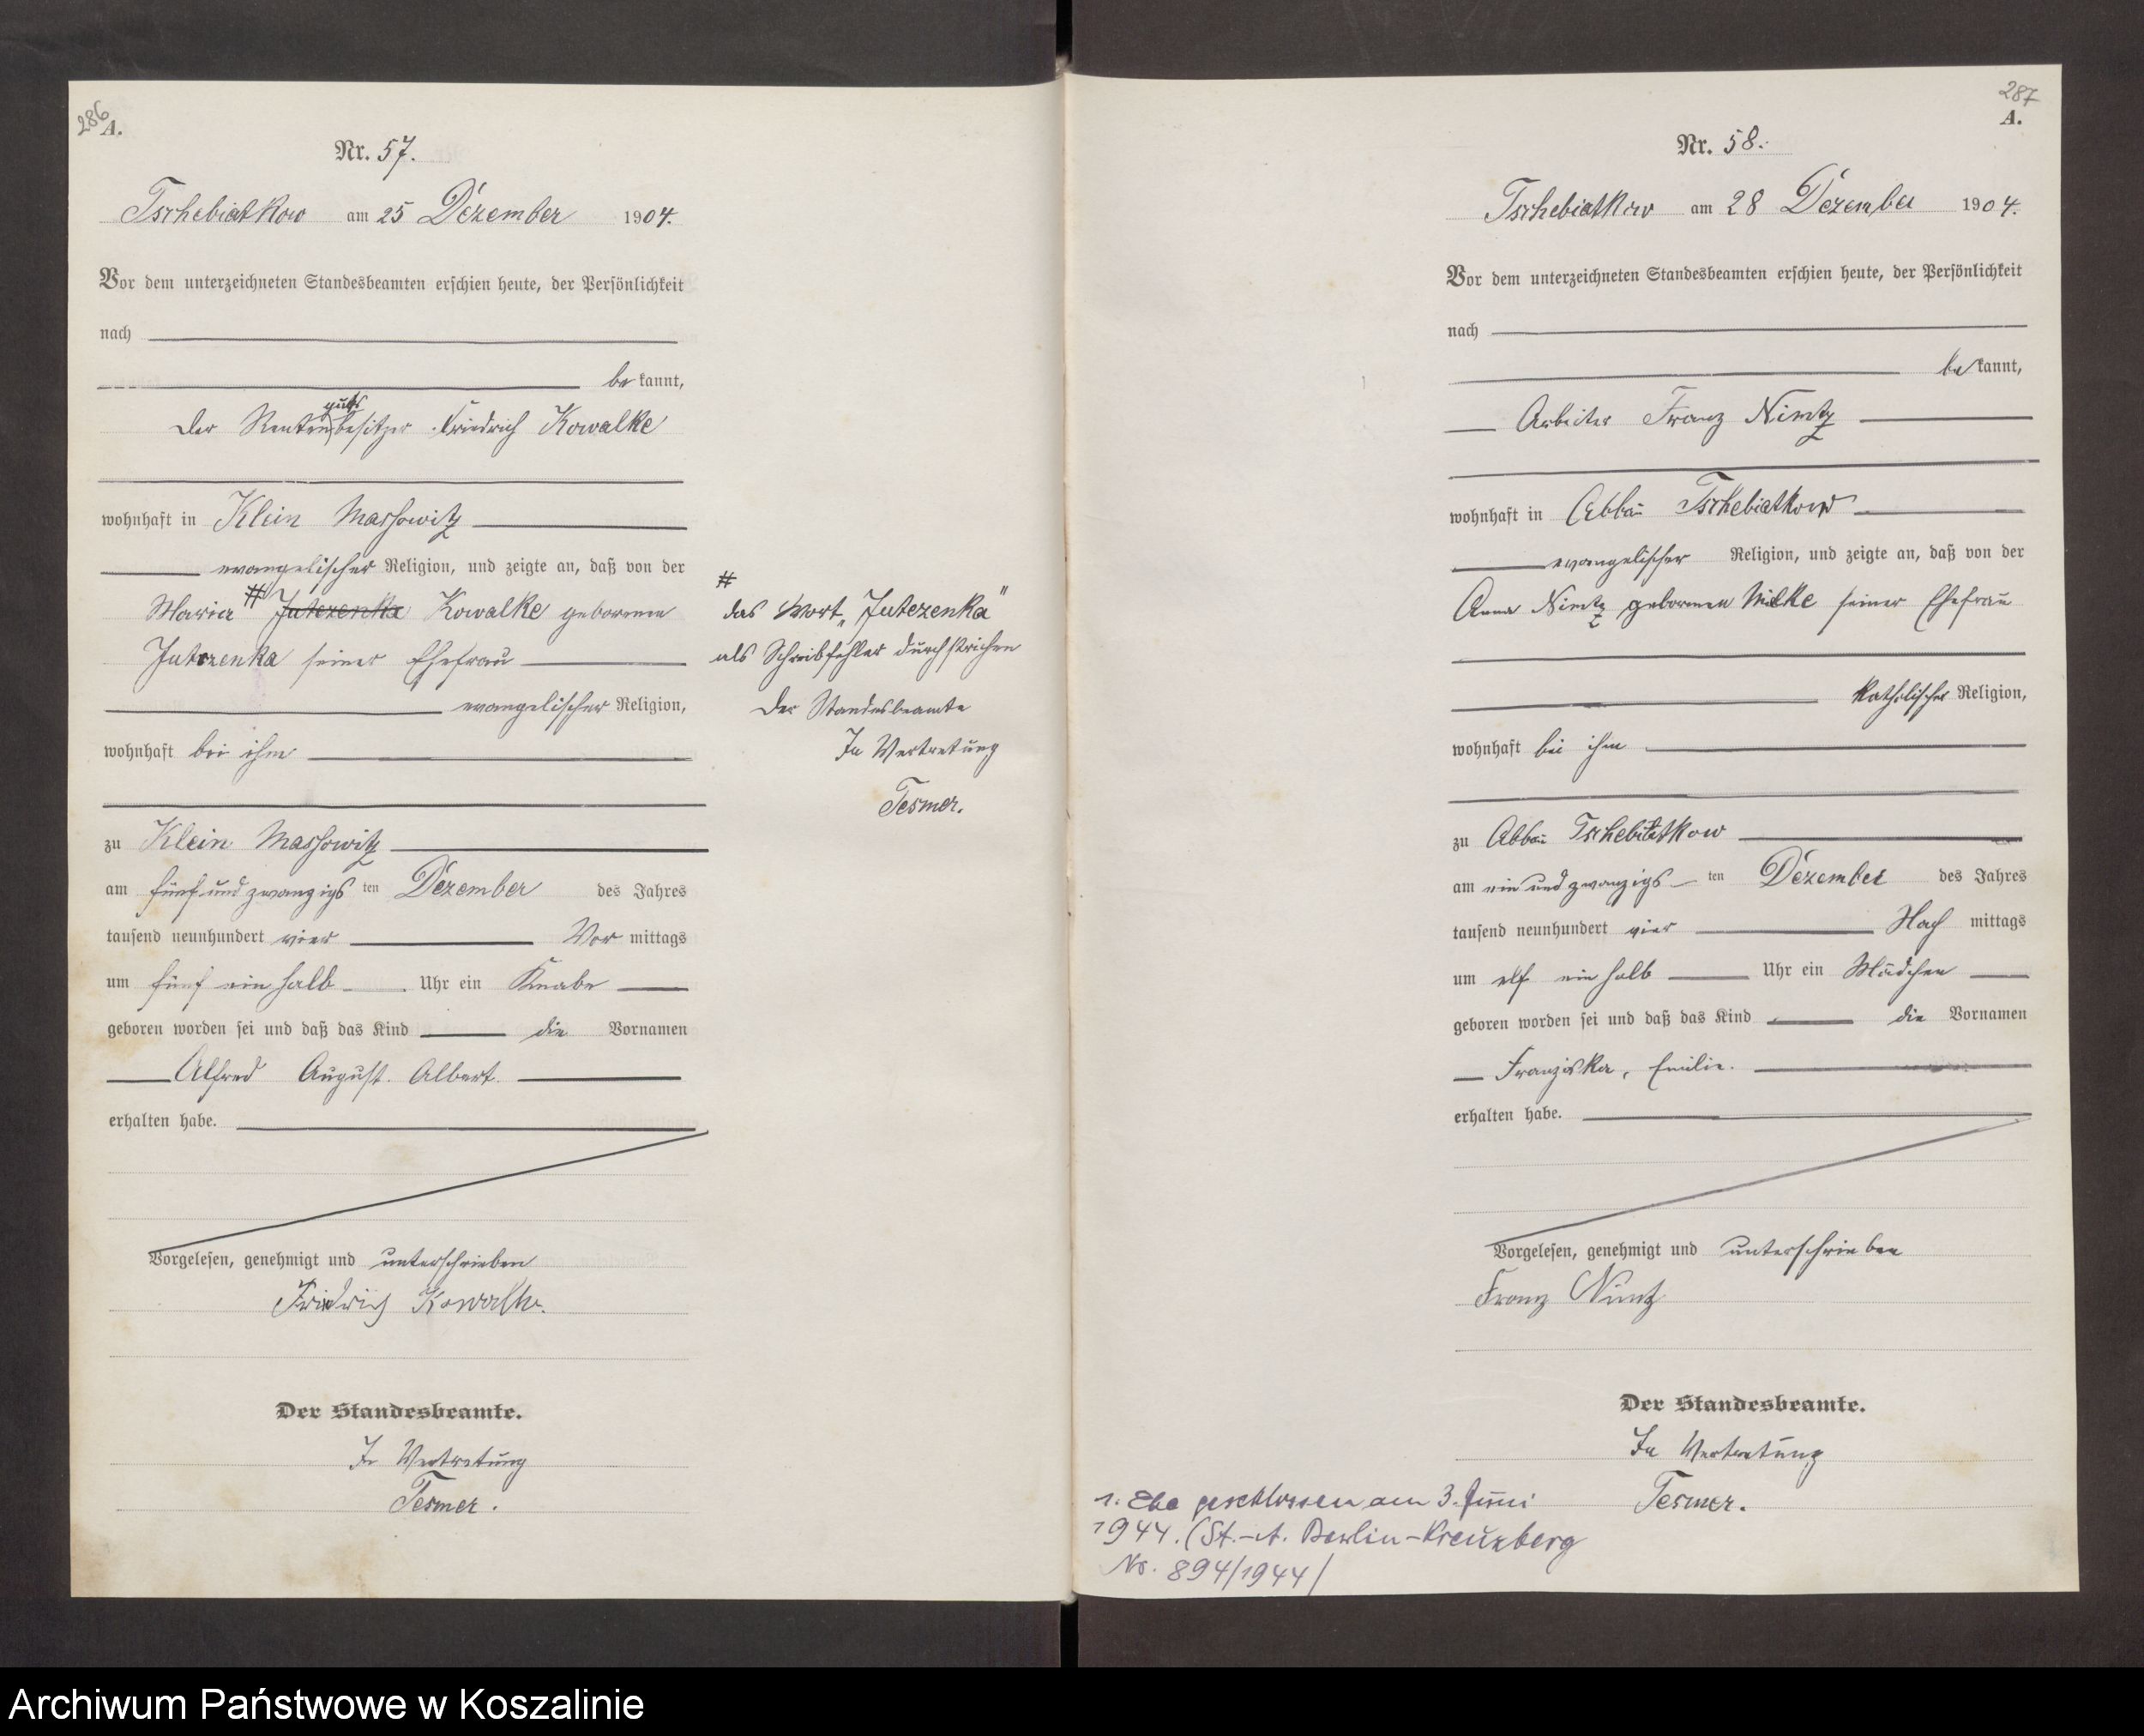 286
A.
Nr. 57.
Tschebiatkow am 25 Dezember 1904.
Vor dem unterzeichneten Standesbeamten erschien heute, der Persönlichkeit
nach
be kannt,
guts
der Rentenbesitzer Friedrich Kowalke
wohnhaft in Klein Massowitz
evangelischer Religion, und zeigte an, daß von der
Maria # Jutrzenka Kowalke geborenen
Jutrzenka seiner Ehefrau
evangelischer Religion,
wohnhaft bei ihm
zu Klein Massowitz
am fünf und zwanzigs ten Dezember des Jahres
tausend neunhundert vier Vor mittags
um fünf ein halb Uhr ein Knabe
geboren worden sei und daß das Kind die Vornamen
Alfred August Albert
erhalten habe.
Vorgelesen, genehmigt und unterschrieben
Friedrich Kowalke.
Der Standesbeamte.
In Vertretung
Tesmer.
#
das Wort „Jutrzenka"
als Schreibfehler durchstrichen
Der Standesbeamte
In Vertretung
Tesmer.
287
A.
Nr. 58.
Tschebiatkow am 28 Dezember 1904.
Vor dem unterzeichneten Standesbeamten erschien heute, der Persönlichkeit
nach
be kannt,
Arbeiter Franz Nimtz
wohnhaft in Abbau Tschebiatkow
evangelischer Religion, und zeigte an, daß von der
Anna Nimtz geborenen Milke seiner Ehefrau
katholischer Religion,
wohnhaft bei ihm
zu Abbau Tschebiatkow
am ein und zwanzigs ten Dezember des Jahres
tausend neunhundert vier Nach mittags
um elf ein halb Uhr ein Mädchen
geboren worden sei und daß das Kind die Vornamen
Franziska, Emilie.
erhalten habe.
Vorgelesen, genehmigt und unterschrieben
Franz Nimtz
Der Standesbeamte.
In Vertretung
Tesmer.
1. Ehe geschlossen am 3. Juni
1944. (St.-A. Berlin-Kreuzberg
Nr. 894/1944/
Archiwum Państwowe w Koszalinie